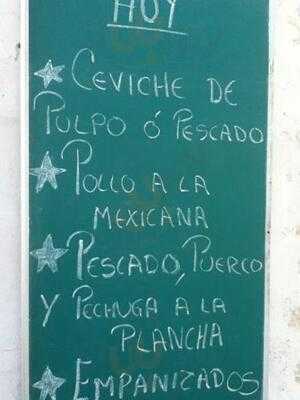 HOY
CEVICHE DE
PULPO Ó PESCADO
POLLO A LA
MEXICANA
PESCADO, PUERCO
Y PECHUGA A LA
PLANCHA
EMPANIZADOS